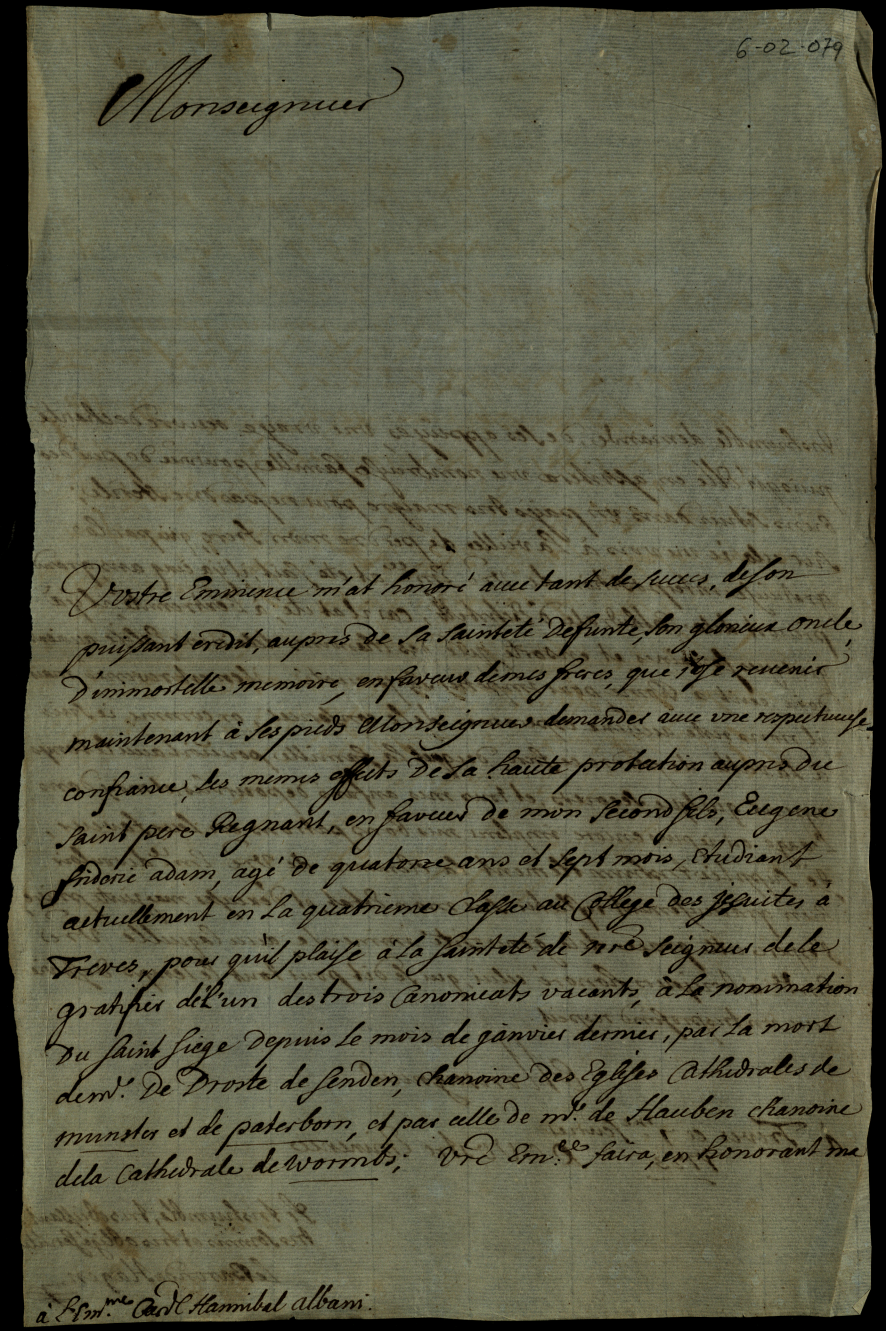 6-02-079
Monseigneur
Vostre Eminence m'at honoré avec tant de succes, de son
puissant credit, aupres de Sa Sainteté Defunte, son glorieux oncle,
D'immortelle memoire, en faveur de mes freres, que i'ose revenir
maintenant à ses pieds Monseigneur demander avec une respectueuse
confiance, les memes effects de Sa haute protection aupres du
saint pere Regnant, en faveur de mon second fils, Eugene
frideric adam, agé de quatorze ans et sept mois, etudiant
actuellement en La quatrieme Classe au College des jesuites à
Treves, pour qu'il plaise à la Sainteté de nre Seigneur de le
gratifier de L'un des trois Canonicats vacants, à La nomination
Du Saint Siege Depuis Le mois de janvier dernier, par La mort
de mr. De Droste de Senden, chanoine des Eglises Cathedrales de
munster et de paterborn, et par celle de mr. de Hauben chanoine
de la Cathedrale de wormbs; Vre Em.ce faira, en honorant ma
à L'Em.me Card.l Hannibal albani.